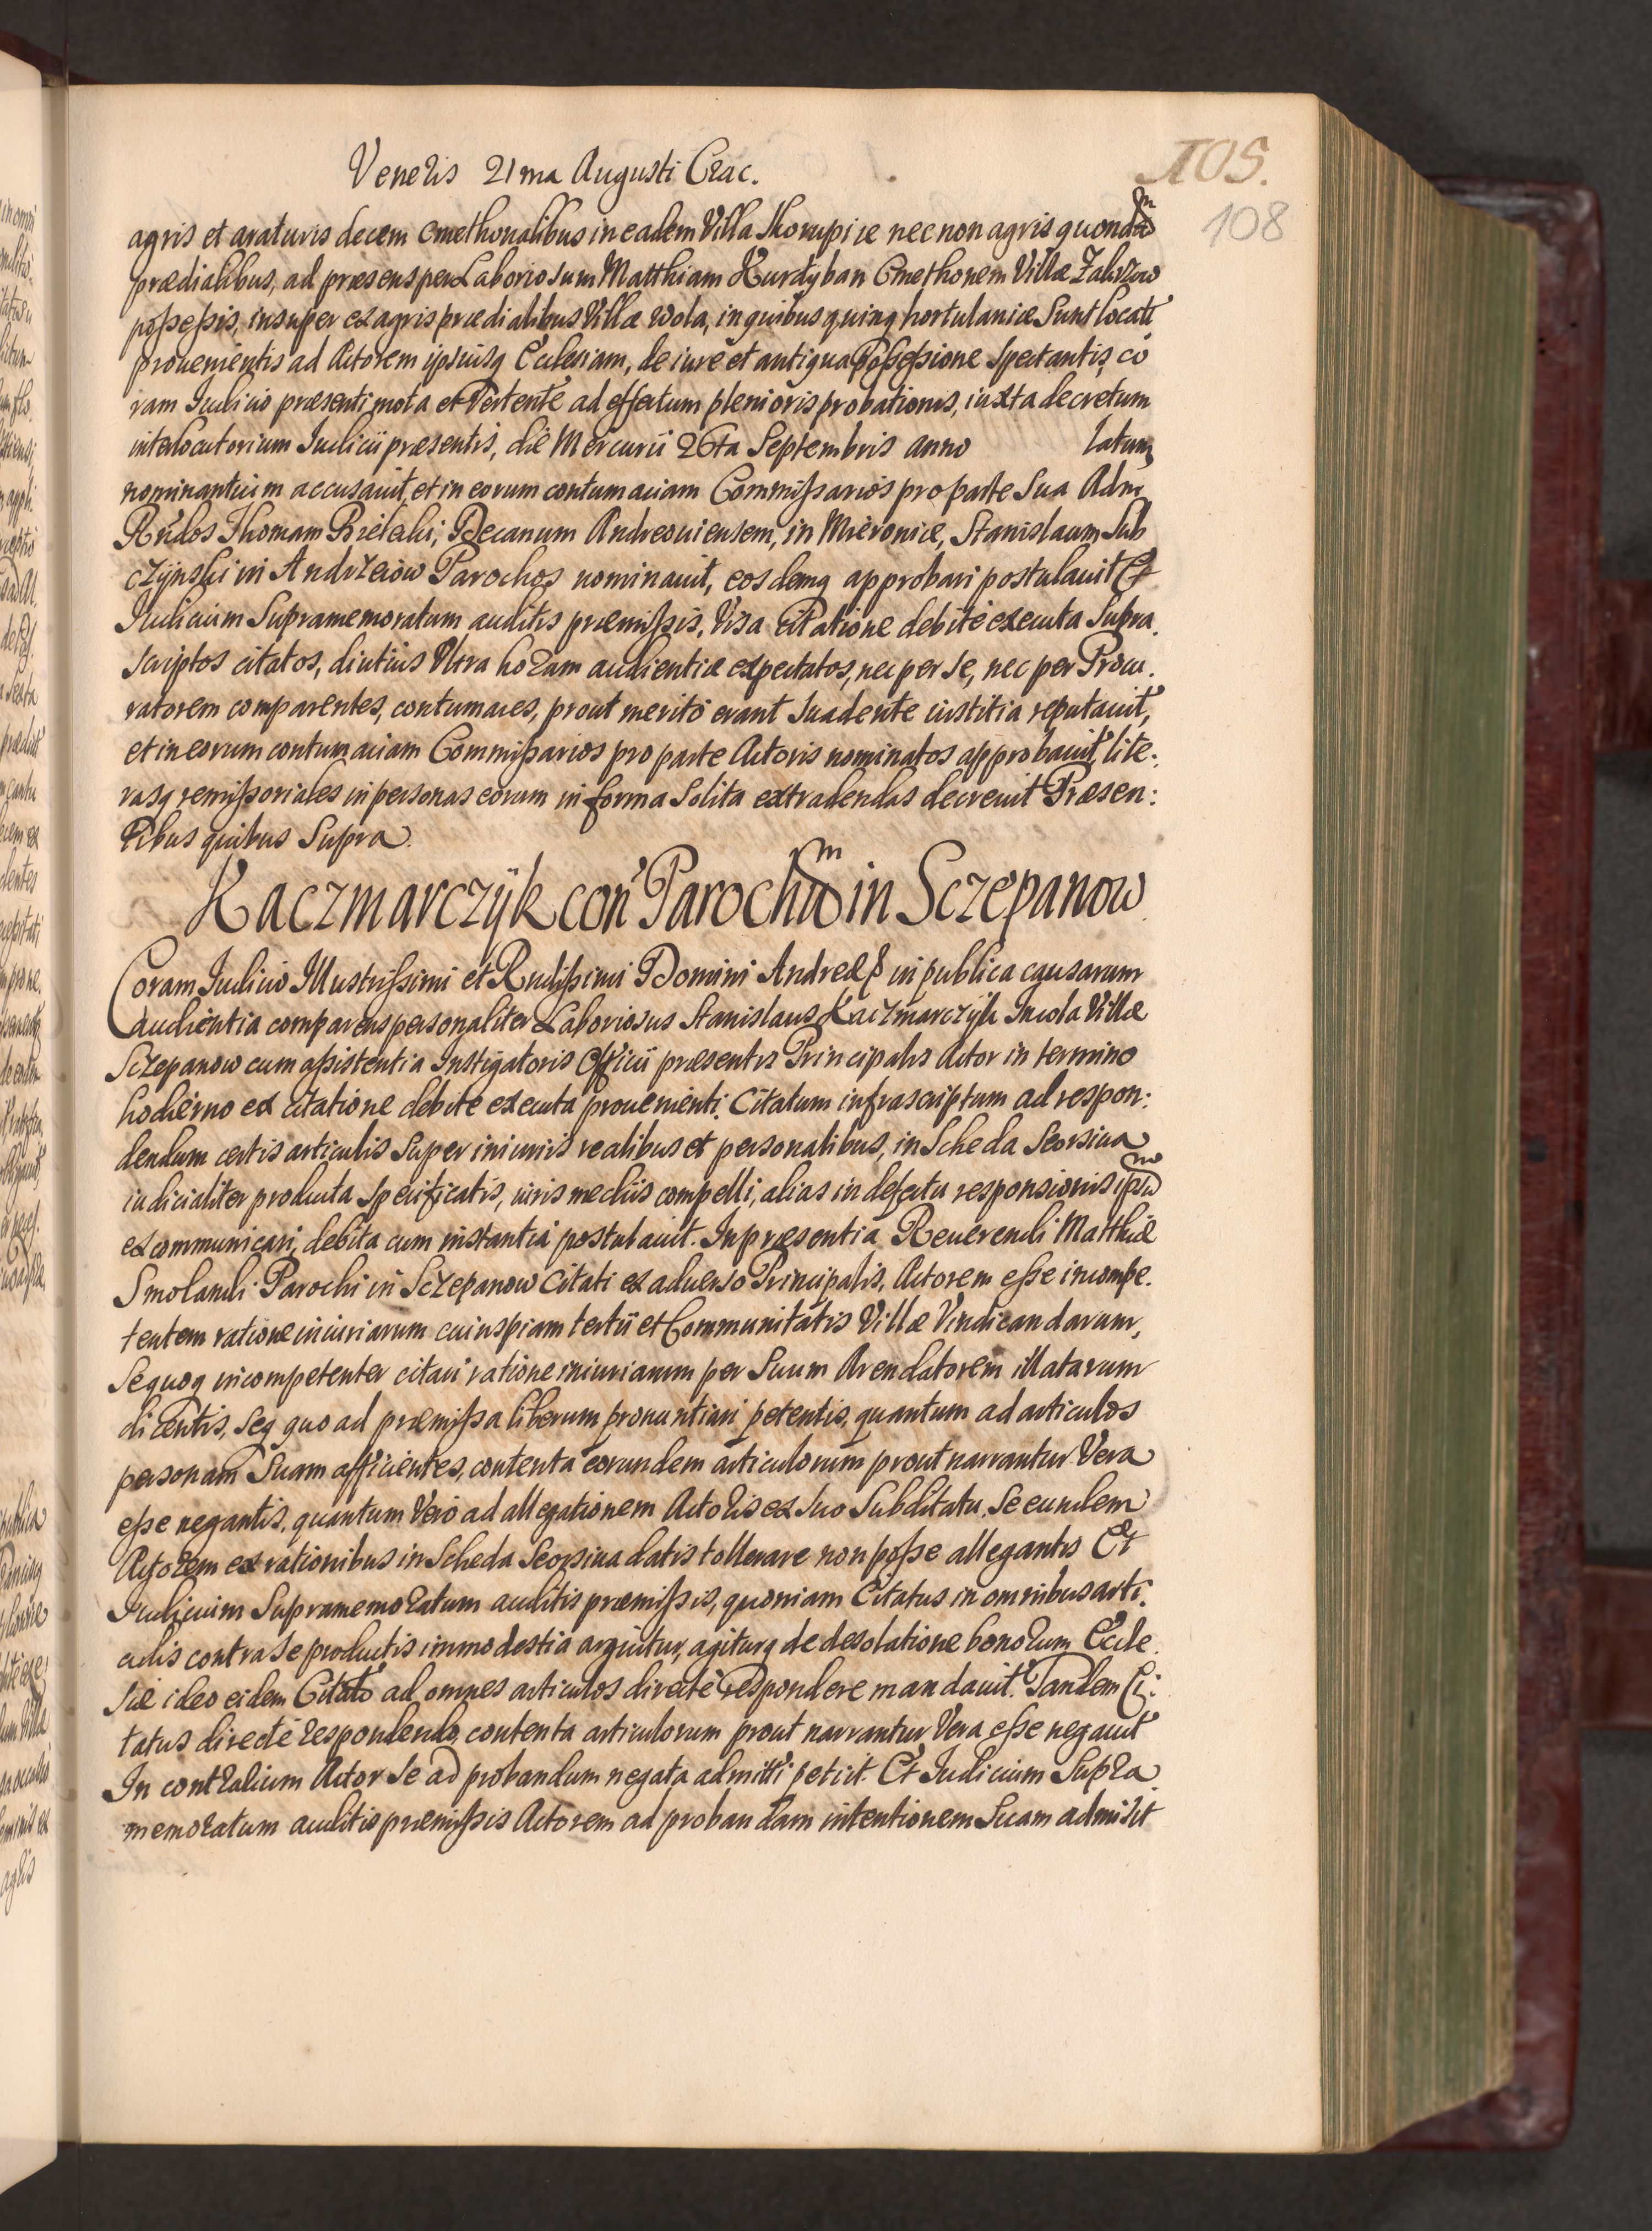 Veneris 21ma Augusti Crac.
105.
108
agris et araturis decem Cmethonalibus in eadem Villa Skorupice nec non agris quondam
prædialibus, ad præsens per Laboriosum Matthiam Kurdyban Cmethonem Villæ
possessis, insuper ex agris prædialibus Villæ Wola, in quibus quinq hortulaniæ Sunt locati
prouenientis ad Actorem ipsiusq Ecclesiam, de iure et antiqua Possessione Spectantis, co
ram Iudicio præsenti mota et Vertente ad effectum plenioris probationis, iuxta decretum
interlocutorium Iudicii præsentis, die Mercurii 26ta Septembris anno latum,
nominantium accusauit, et in eorum contumaciam Commissarios pro parte Sua Adm
Rndos Thomam Bielski, Decanum Andreouiensem, in Mieronice, Stanislaum Sub
czÿnski in Andrzeiów Parochos nominauit, eosdemq approbari postulauit Et
Iudicium Supramemoratum auditis præmissis, Visa citatione debitè executa Supra.
scriptos citatos, diutius Ultra horam audientiæ expectatos, nec per se, nec per Procu.
ratorem comparentes, contumaces, prout meritò erant Suadente iustitia reputauit,
et in eorum contumaciam Commissarios pro parte Actoris nominatos approbauit, lite:
rasq remissoriales in personas eorum in forma Solita extradendas decreuit Præsen:
tibus quibus Supra.
Kaczmarczÿk con Parochum in Sczepanow
Coram Iudicio Illustrissimi et Rndissimi Domini Andreæ &c in publica causarum
audientia comparens personaliter Laboriosus Stanislaus Kaczmarczÿk Incola Villæ
Sczepanow cum assistentia Instigatoris Officii præsentis Principalis Actor in termino
hodierno ex citatione debitè executa prouenienti. Citatum infrascriptum ad respon:
dendum certis articulis Super iniuriis realibus et personalibus, in Scheda Seorsiua
iudicialiter producta Specificatis, iuris mediis compelli, alias in defectu responsionis ipsum
excommunicari, debita cum instantia postulauit. In præsentia Reuerendi Matthiæ
Parochi in Sczepanow Citati ex aduerso Principalis, Actorem esse incompe.
tentem ratione iniuriarum cuiuspiam tertii et Communitatis Villæ Vindicandarum,
Sequoq incompetenter citari ratione iniuriarum per Suum Arendatorem illatarum
dicentis, Seq quo ad præmissa liberum pronuntiari petentis, quantum ad articulos
personam Suam afficientes, contenta eorundem articulorum prout narrantur Vera
esse negantis, quantum Verò ad allegationem Actoris ex Suo Subditatu, Se eundem
Actorem ex rationibus in Scheda Seorsiua datis tollerare non posse allegantis Et
Iudicium Supramemoratum auditis præmissis, quoniam Citatus in omnibus arti.
culis contra Se productis immodestia arguitur, agiturq de desolatione bonorum Eccle.
siæ ideo eidem Citato ad omnes articulos directè respondere mandauit. Tandem Ci:
tatus directè respondendo, contenta articulorum prout narrantur Vera esse negauit
In contrarium Actor Se ad probandum negata admitti petiit. Et Iudicium Supra.
memoratum auditis præmissis Actorem ad probandam intentionem Suam admisit